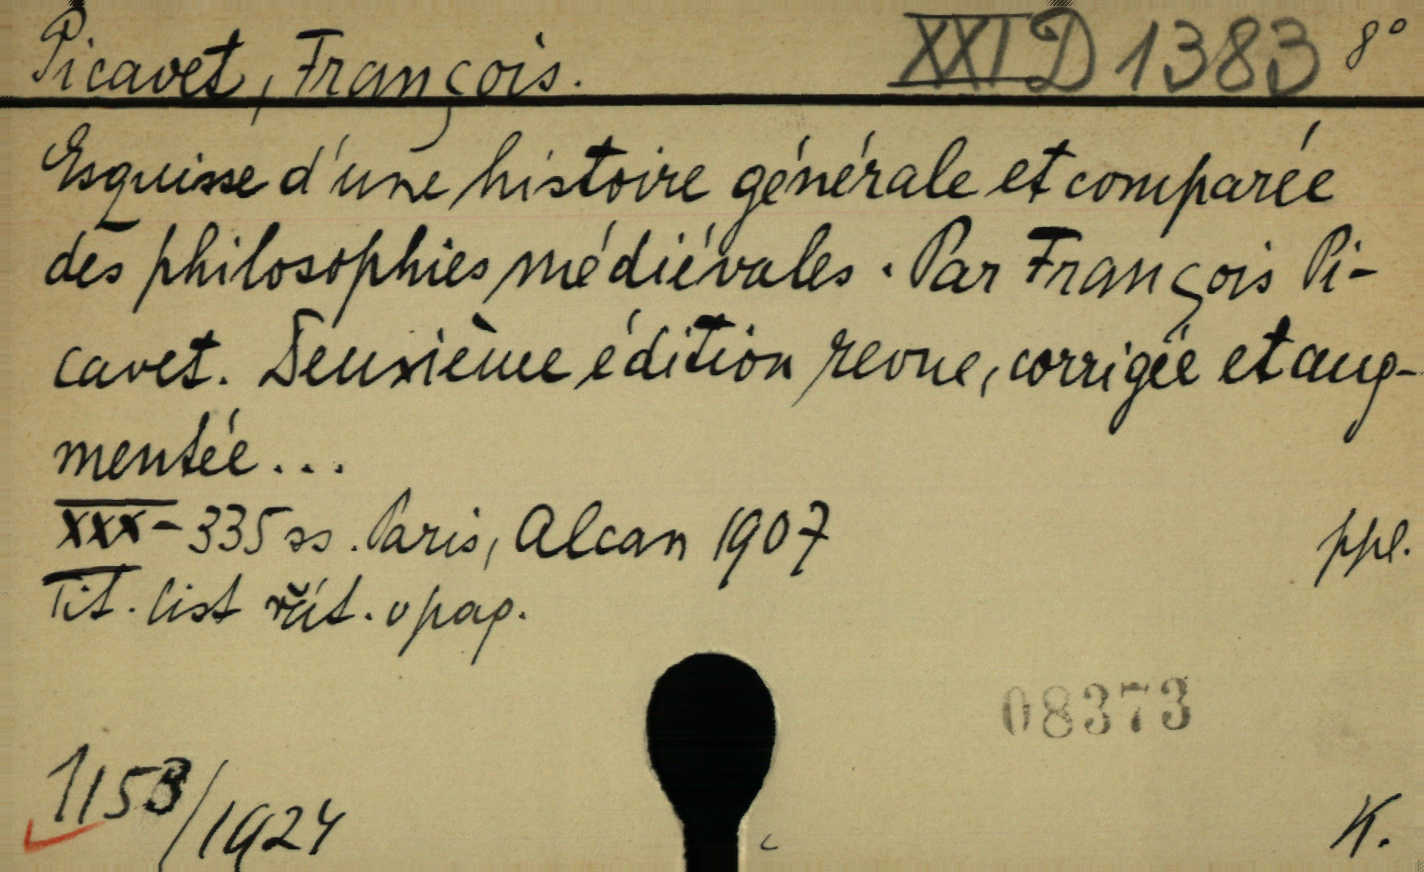 Picavet, François. XXI D 1383 8°
Esquisse d'une histoire générale et comparée
des philosophies médiévales. Par François Pi-
cavet. Deuxième édition revue, corrigée et aug-
mentée...
XXX-335 ss. Paris, Alcan 1907 ppl.
Tit. list v pag.
08373
1153/1924 K.